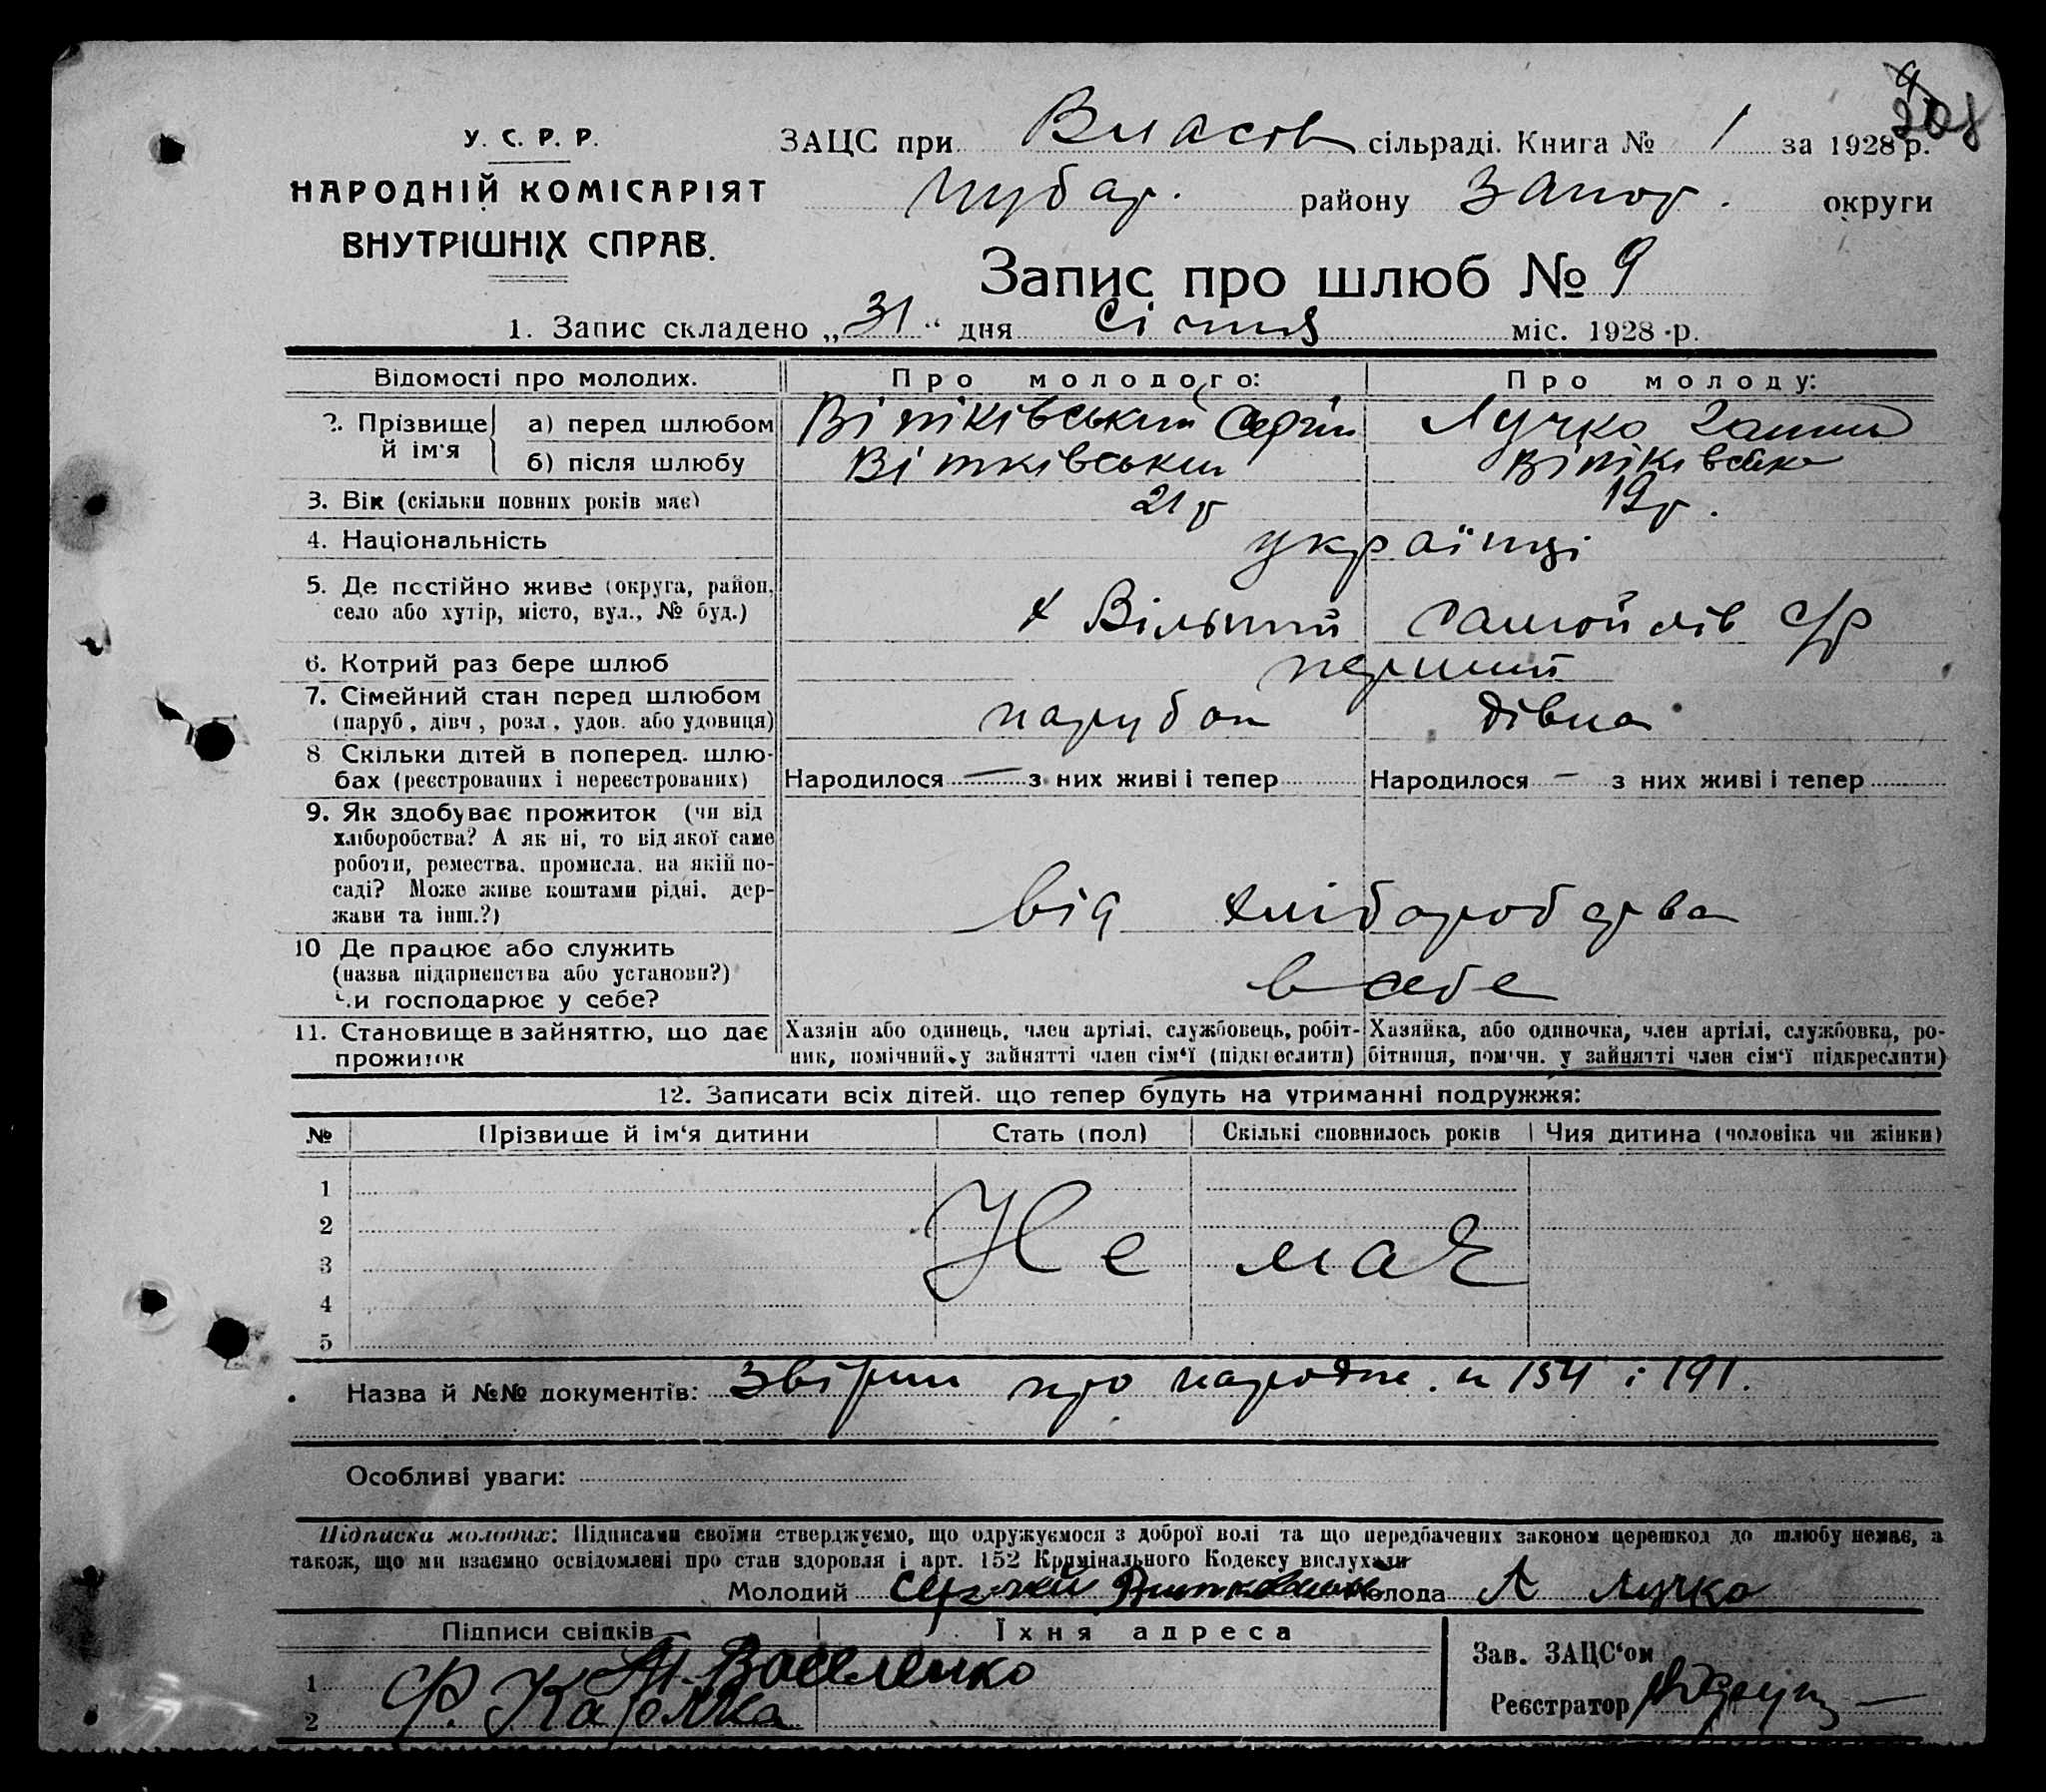 208
У. С. Р. Р.
НАРОДНІЙ КОМІСАРІЯТ
ВНУТРІШНІХ СПРАВ.
ЗАЦС при Власів сільраді. Книга № 1 за 1928 р.
Чубар. району Запор. округи
Запис про шлюб № 9
1. Запис складено „31“ дня січня міс. 1928 р.
Відомості про молодих. Про молодого: Про молоду:
2. Прізвище й ім'я а) перед шлюбом Вітківський Сергій Лучко Ганна
б) після шлюбу Вітківський Вітківська
3. Вік (скільки повних років має) 21 р 19 р.
4. Національність українці
5. Де постійно живе (округа, район,
село або хутір, місто, вул., № буд.) х Вільний Самойлів с/р
6. Котрий раз бере шлюб перший
7. Сімейний стан перед шлюбом
(паруб., дівч., розл., удов. або удовиця) парубок дівка
8 Скільки дітей в поперед. шлю-
бах (реєстрованих і нереєстрованих) Народилося — з них живі і тепер Народилося — з них живі і тепер
9. Як здобуває прожиток (чи від
хліборобства? А як ні, то від якої саме
роботи, ремества, промисла, на якій по-
саді? Може живе коштами рідні, дер-
жави та інш.?) від хліборобства
10 Де працює або служить
(назва підприємства або установи?)
Чи господарює у себе? в себе
11. Становище в зайняттю, що дає
прожиток
Хазяін або одинець, член артілі, службовець, робіт-
ник, помічний у зайнятті член сім'ї (підкреслити)
Хазяйка, або одиночка, член артілі, службовка, ро-
бітниця, помічн. у зайнятті член сім'ї підкреслити)
12. Записати всіх дітей, що тепер будуть на утриманні подружжя:
№ Прізвище й ім'я дитини Стать (пол) Скількі сповнилось років Чия дитина (чоловіка чи жінки)
1
2
3 Не має
4
5
Назва й №№ документів: про народж. н 154 і 191.
Особливі уваги:
Підписки молодих: Підписами своїми стверджуємо, що одружуємося з доброї волі та що передбачених законом перешкод до шлюбу немає, а
також, що ми взаємно освідомлені про стан здоровля і арт. 152 Кримінального Кодексу вислухали
Молодий Сергей Молода Лучко
Підписи свідків Їхня адреса
1 Василенко
2 Ф.
Зав. ЗАЦС'ом
Реєстратор